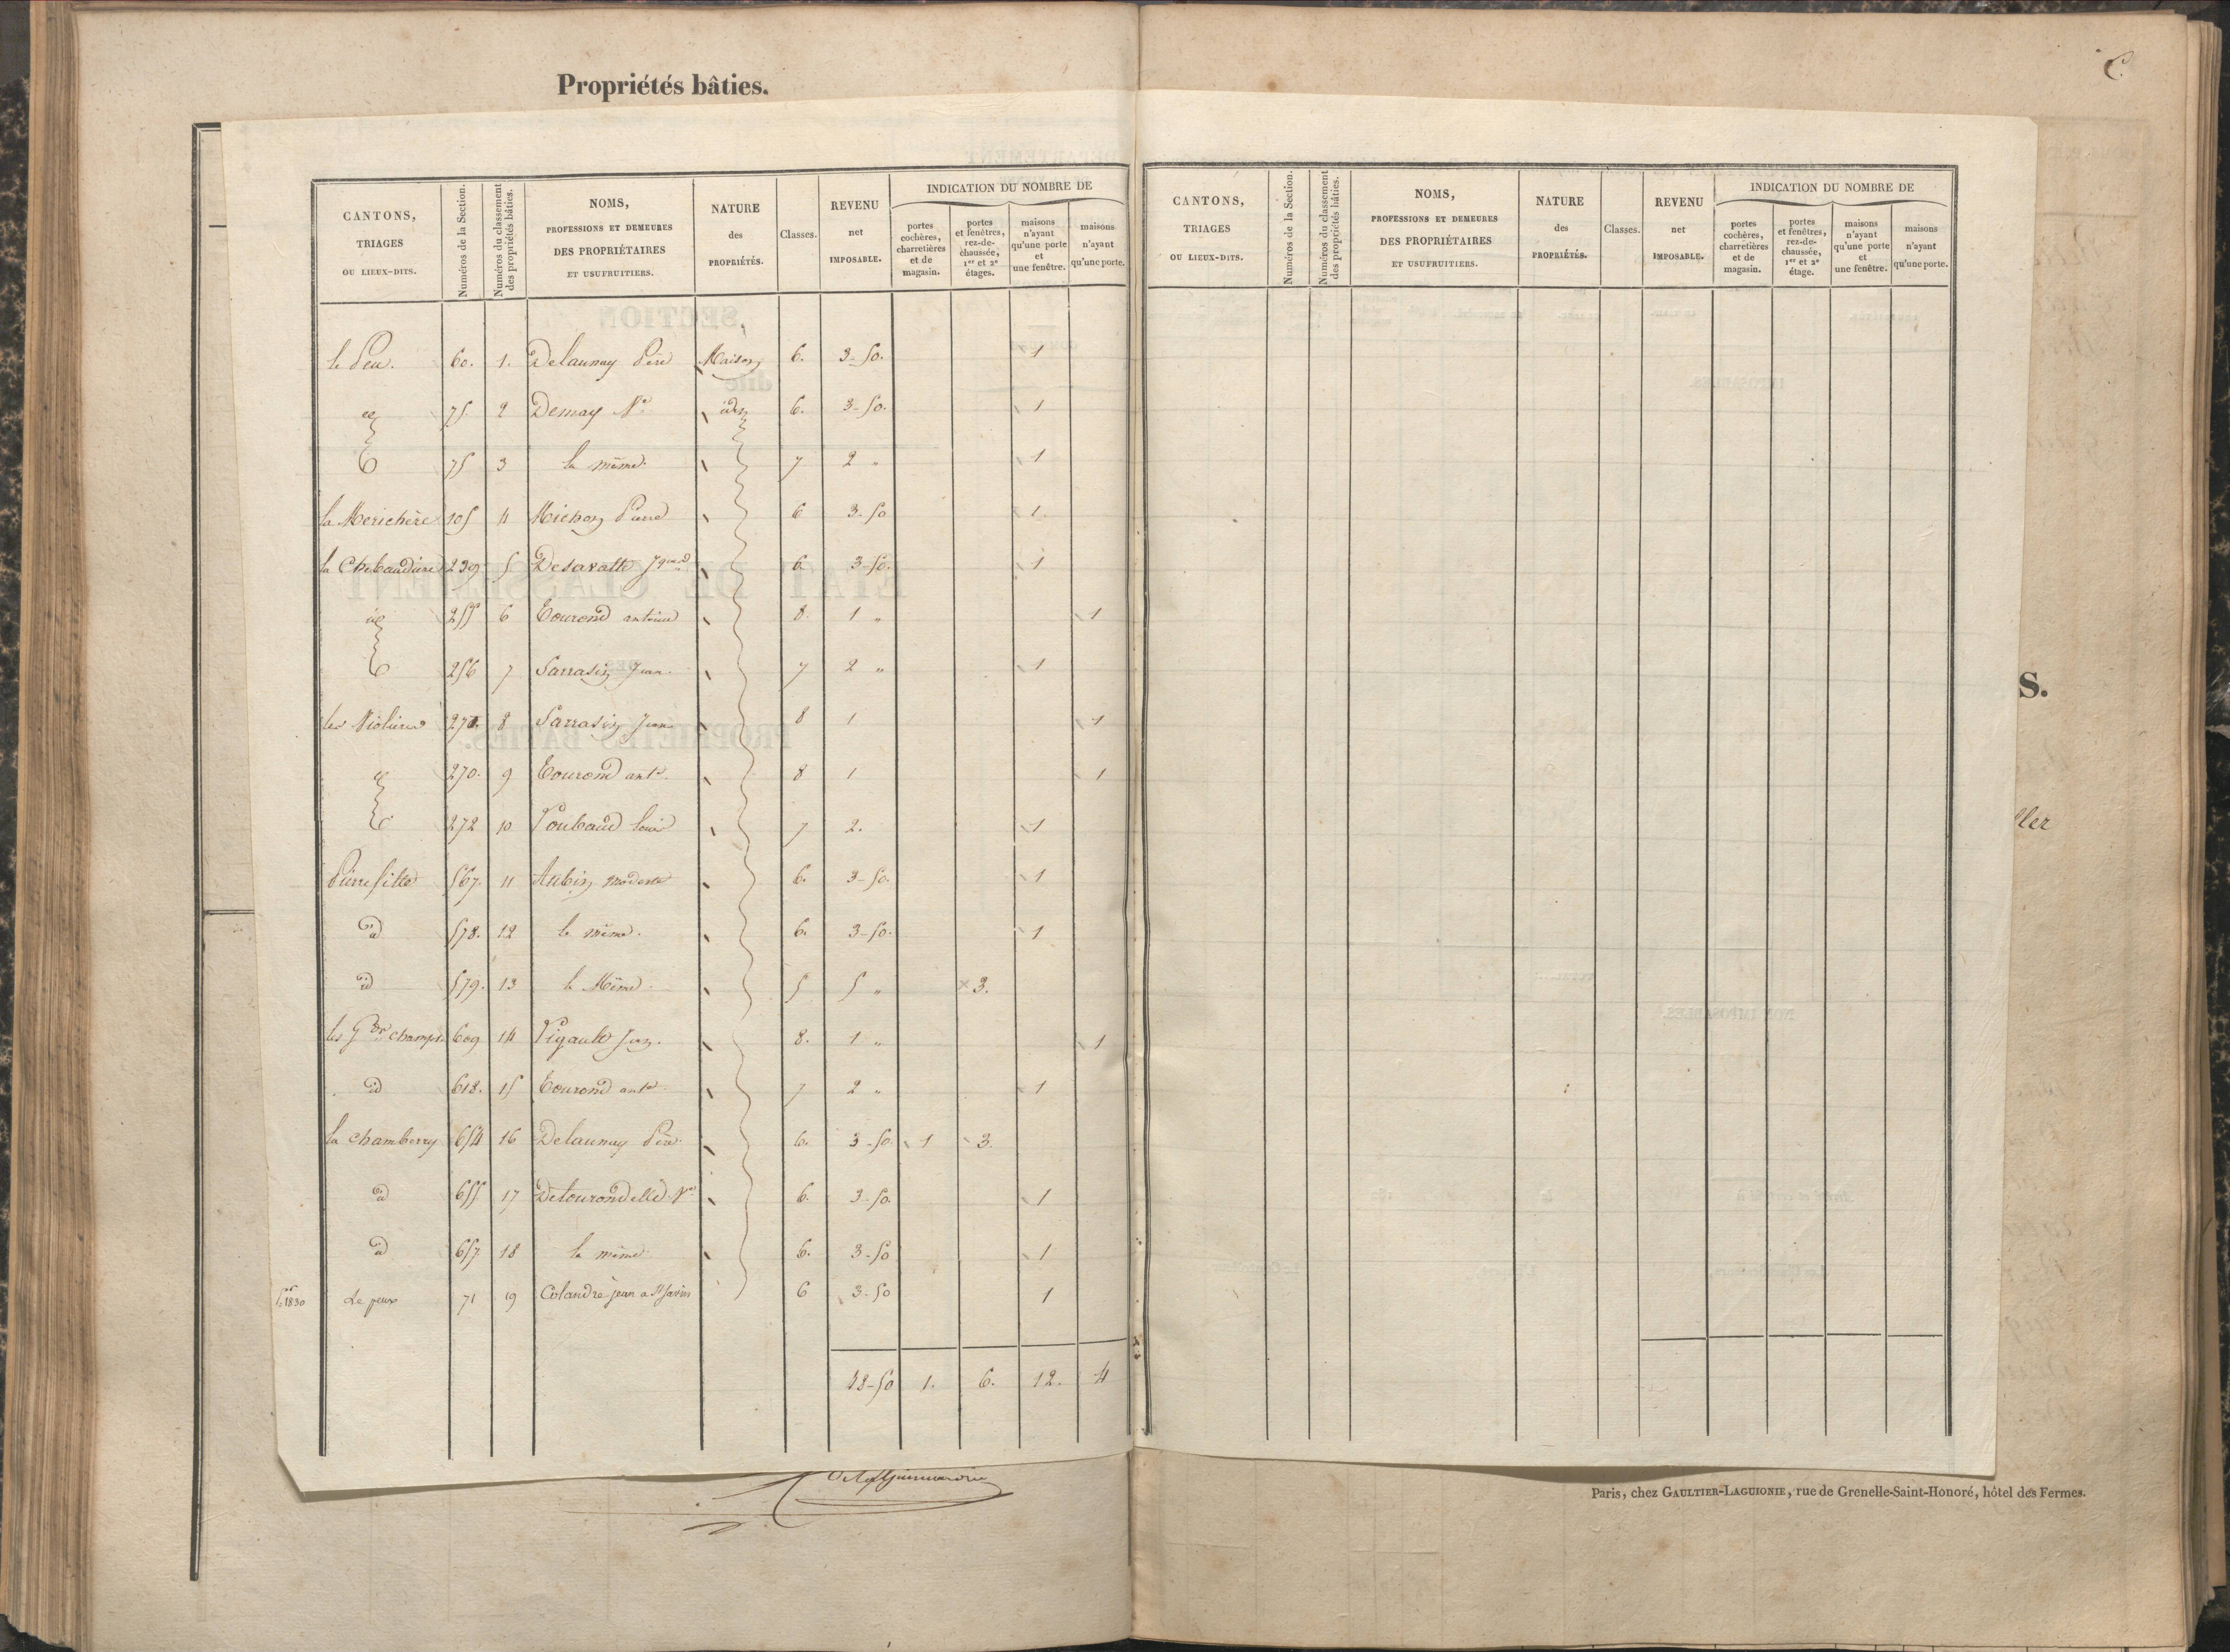 Propriétés bâties.
C.
CANTONS, TRIAGES OU LIEUX-DITS.
Numéros de la Section.
Numéros du classement des propriétés bâties.
NOMS, PROFESSIONS ET DEMEURES DES PROPRIÉTAIRES ET USUFRUITIERS.
NATURE des PROPRIÉTÉS.
Classes.
REVENU net IMPOSABLE.
INDICATION DU NOMBRE DE
portes cochères, charretières et de magasin.
portes et fenêtres, rez-de-chaussée, 1er et 2e étages.
maisons n'ayant qu'une porte et une fenêtre.
maisons n'ayant qu'une porte.
le Peu. 60. 1. Delaunay Père Maison 6. 3-50. 1
75 2 Demay Ve idem 6. 3-50. 1
75 3 la même. 7 2 " 1
la Merichère 105 4 Michon Pierre 6 3-50 1.
la Chebaudière 239 5 6. 3-50. 1
255 6 Tourond antoine 8. 1 " 1
256 7 Sarrasin Jean. 7 2 " 1
les 270. 8 Sarrasin Jean 8 1 1
270. 9 Tourond ant. 8 1 1
272 10 louis 7 2. 1
Pierrefitte 567. 11 Aubin modeste 6. 3-50. 1
id 578. 12 le même. 6. 3-50. 1
id 579. 13 le Même. 5 5 " × 3.
les Gds champs. 609 14 Pigault 8. 1 " 1
id 618. 15 Tourond ant. 7 2 " 1
la chamberry 654 16 Delaunay Père 6. 3-50. 1 3.
id 655 17 Detourondelle Ve 6. 3-50. 1
id 657. 18 la même 6. 3-50 1
1830 Le peux 71 19 Colandre jean a St Savin 6 3-50 1
48-50 1. 6. 12. 4
CANTONS, TRIAGES OU LIEUX-DITS.
Numéros de la Section.
Numéros du classement des propriétés bâties.
NOMS, PROFESSIONS ET DEMEURES DES PROPRIÉTAIRES ET USUFRUITIERS.
NATURE des PROPRIÉTÉS.
Classes.
REVENU net IMPOSABLE.
INDICATION DU NOMBRE DE
portes cochères, charretières et de magasin.
portes et fenêtres, rez-de-chaussée, 1er et 2e étage.
maisons n'ayant qu'une porte et une fenêtre.
maisons n'ayant qu'une porte.
S.
ller
Paris, chez GAULTIER-LAGUIONIE, rue de Grenelle-Saint-Honoré, hôtel des Fermes.